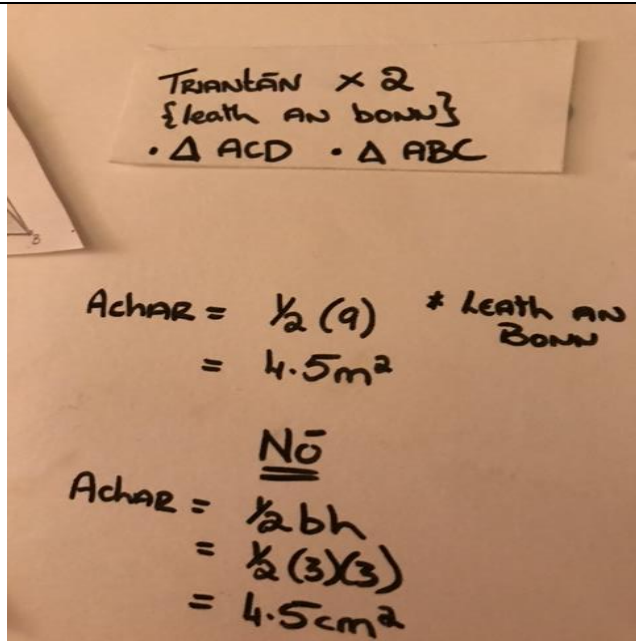 TRIANTĀN × 2
{leath AN bonn}
• Δ ACD • Δ ABC
B
AchAR = ½ (9) * LEATh AN
BONN
= 4.5m²
NŌ
AchAR = ½ bh
= ½ (3)(3)
= 4.5cm²